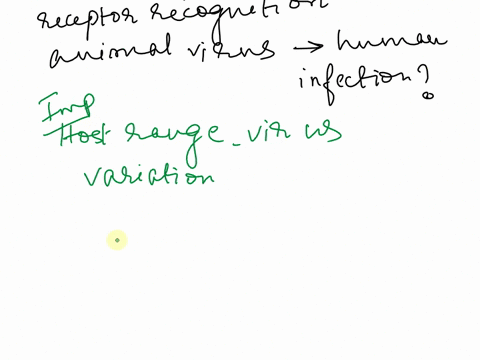 receptor recognition
animal virus → human
infection?
Imp
Host range - virus
variation